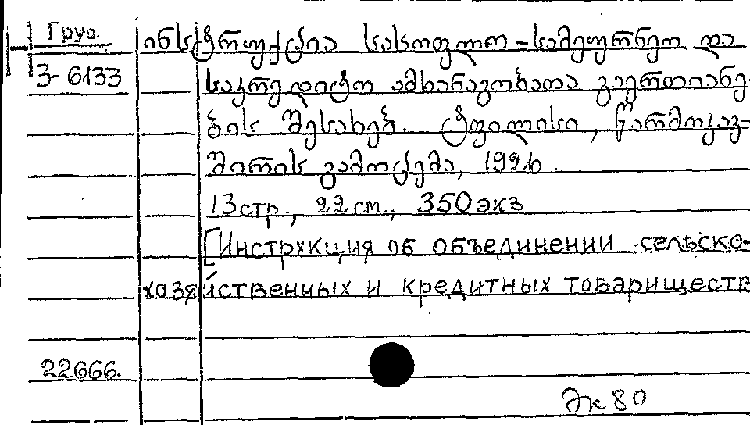 Груз. ინსტრუქცია სასოფლო-სამეურნეო და
3-6133 საკრედიტო ამხანაგობათა გაერთიანე-
ბის შესახებ. ტფილისი, წარმოკავ-
შირის გამოცემა, 192
13 стр., 22 см., 350 экз
[Инструкция об объединении сельско-
хозяйственных и кредитных товариществ
22666.
Эк 80